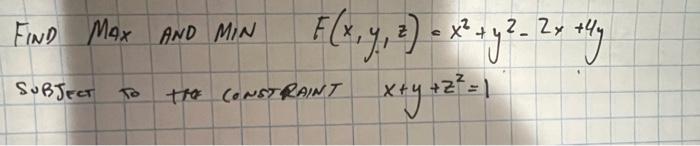 FIND MAX AND MIN F(x, y, z) = x² + y² - 2x + 4y
SUBJECT TO THE CONSTRAINT x + y + z² = 1